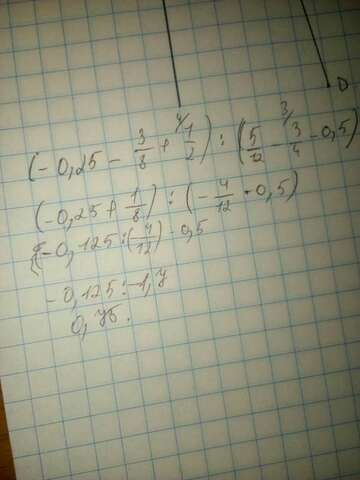 D
(-0,25 - 3/8 + 4/ 1/2) : (5/12 - 3/ 3/4 - 0,5)
(-0,25 + 1/8) : (-4/12 - 0,5)
-0,125 : (4/12) - 0,5
-0,125 :
0,